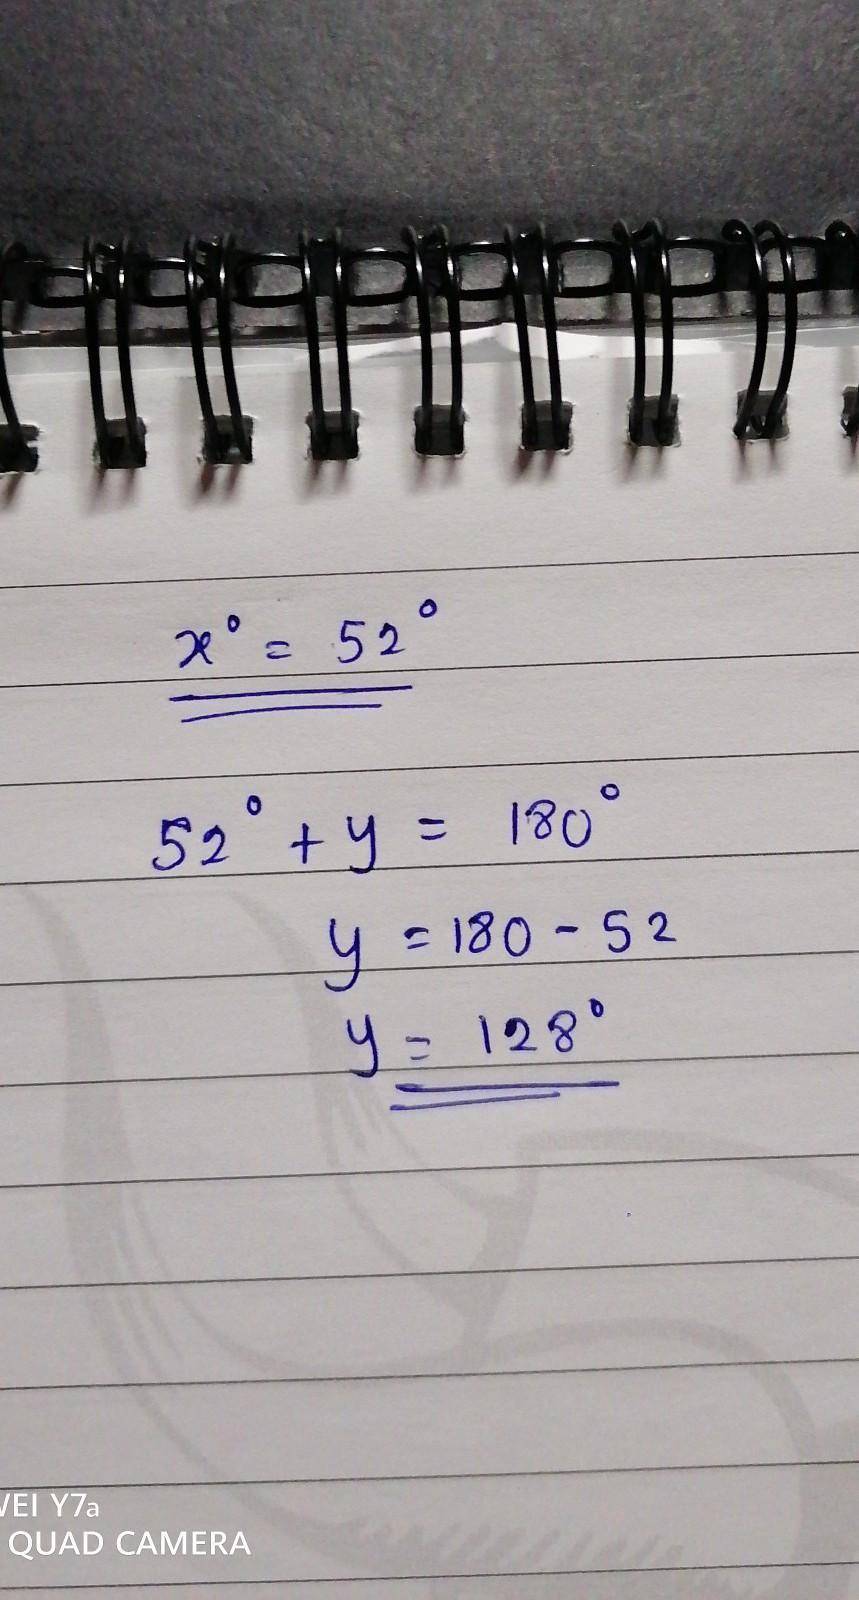 x° = 52°
52° + y = 180°
y = 180 - 52
y = 128°
VEI Y7a
QUAD CAMERA